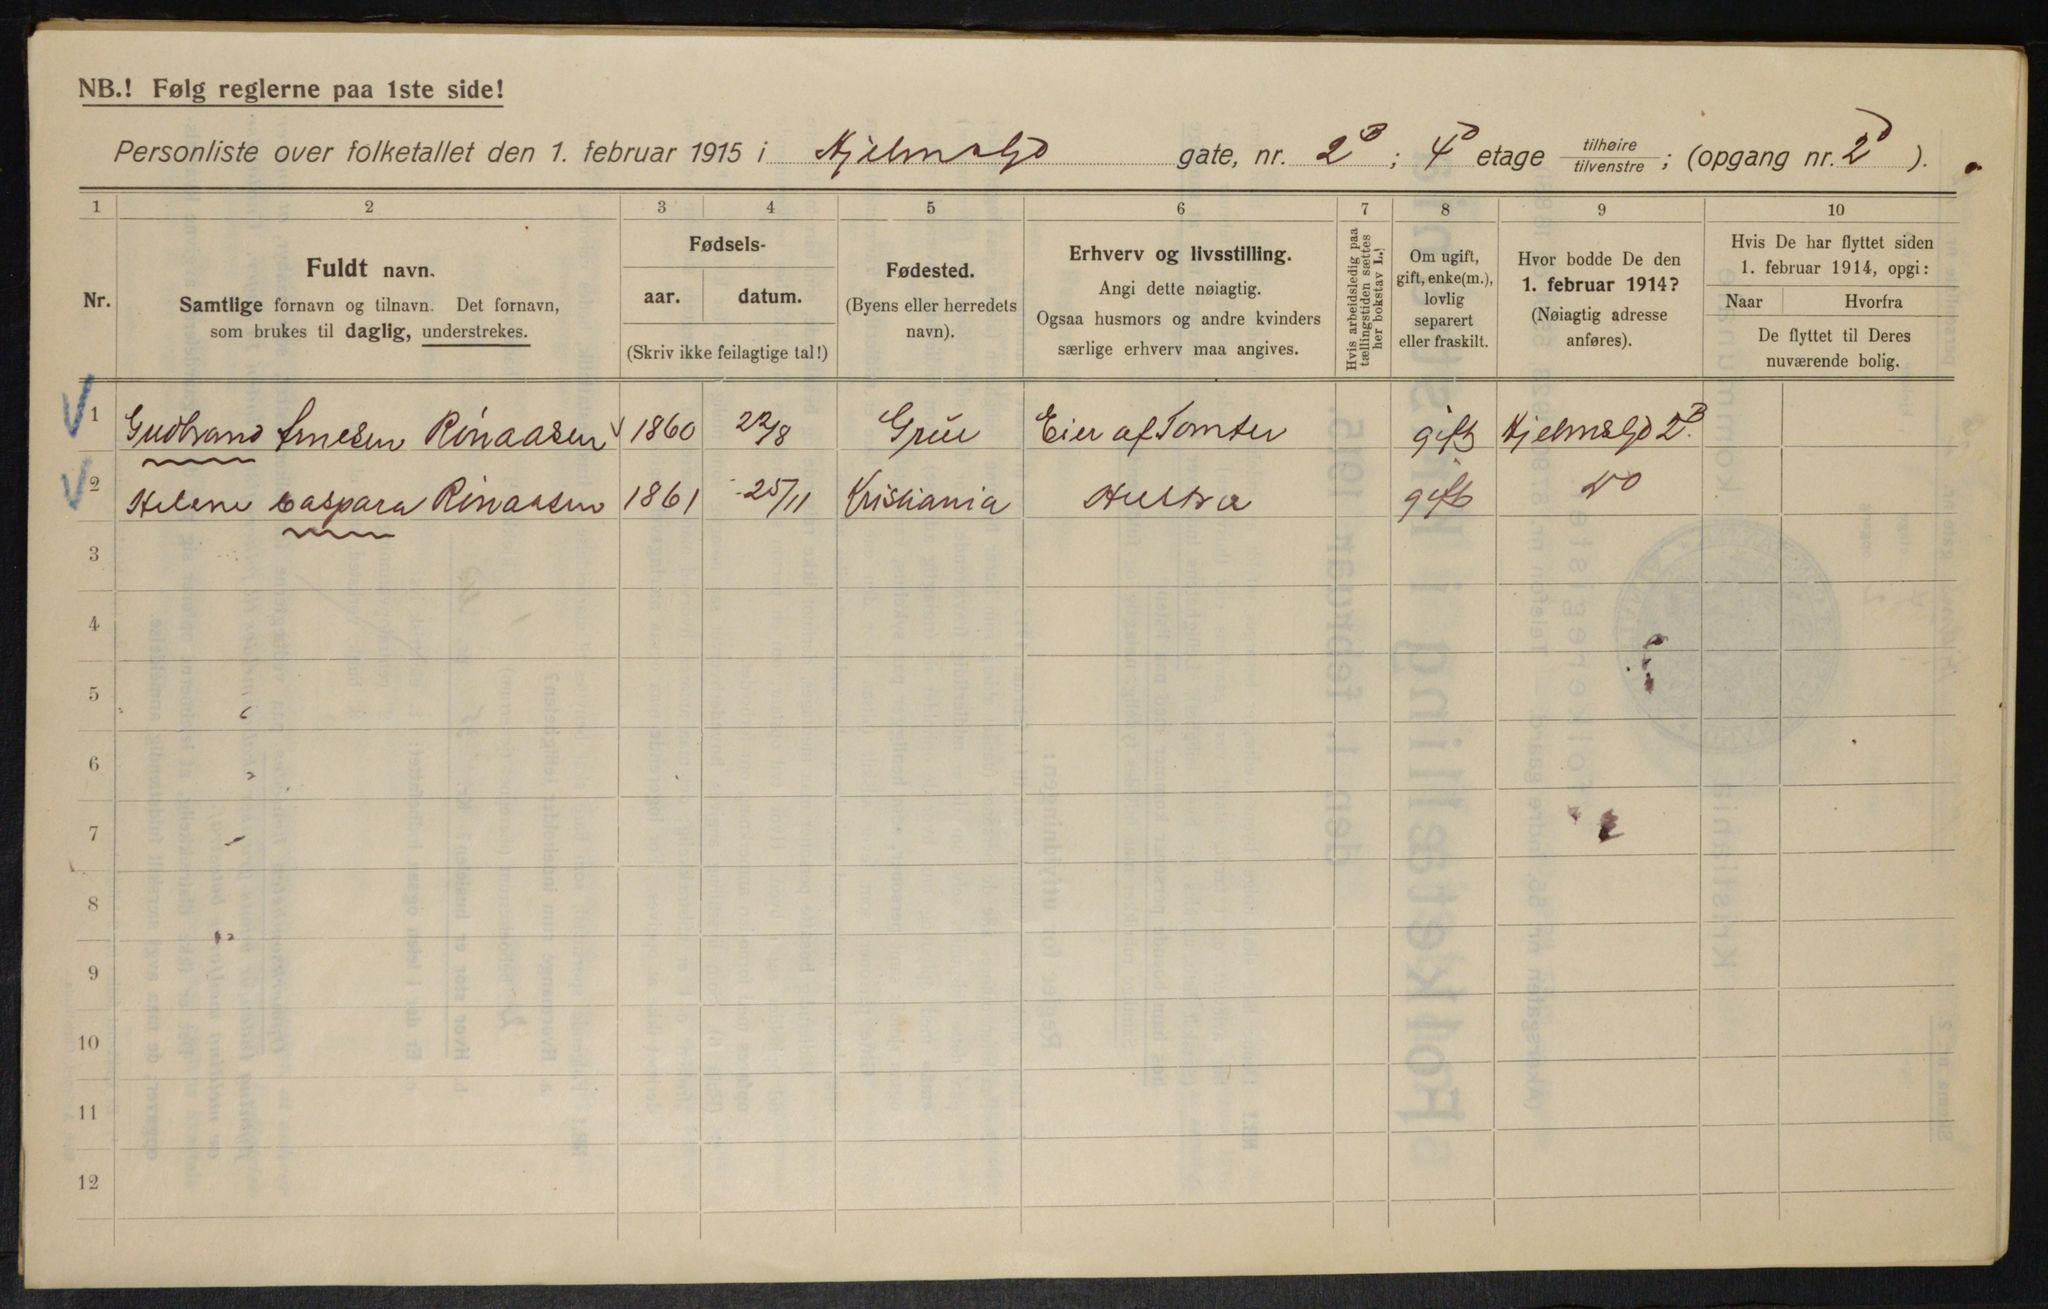 NB.! Følg reglerne paa 1ste side!
Personliste over folketallet den 1. februar 1915 i Hjelmsgd gate, nr. 2B ; 4D etage tilhøire tilvenstre ; (opgang nr. 2D ).
1 2 3 4 5 6 7 8 9 10
Nr.
Fuldt navn.
Samtlige fornavn og tilnavn. Det fornavn,
som brukes til daglig, understrekes.
Fødsels-
aar. datum.
(Skriv ikke feilagtige tal!)
Fødested.
(Byens eller herredets
navn).
Erhverv og livsstilling.
Angi dette nøiagtig.
Ogsaa husmors og andre kvinders
særlige erhverv maa angives.
Hvis arbeidsledig paa
tællingstiden sættes
her bokstav L.!
Om ugift,
gift, enke(m.),
lovlig
separert
eller fraskilt.
Hvor bodde De den
1. februar 1914?
(Nøiagtig adresse
anføres).
Hvis De har flyttet siden
1. februar 1914, opgi:
Naar Hvorfra
De flyttet til Deres
nuværende bolig.
1 Gudbrand Arnesen Rönaasen 1860 22/8 Grue Eier af Tomter gift Hjelmsgd 2B.
2 Helene Caspara Rönaasen 1861 25/11 Kristiania Hustru gift do
3
4
5
6
7
8
9
10
11
12